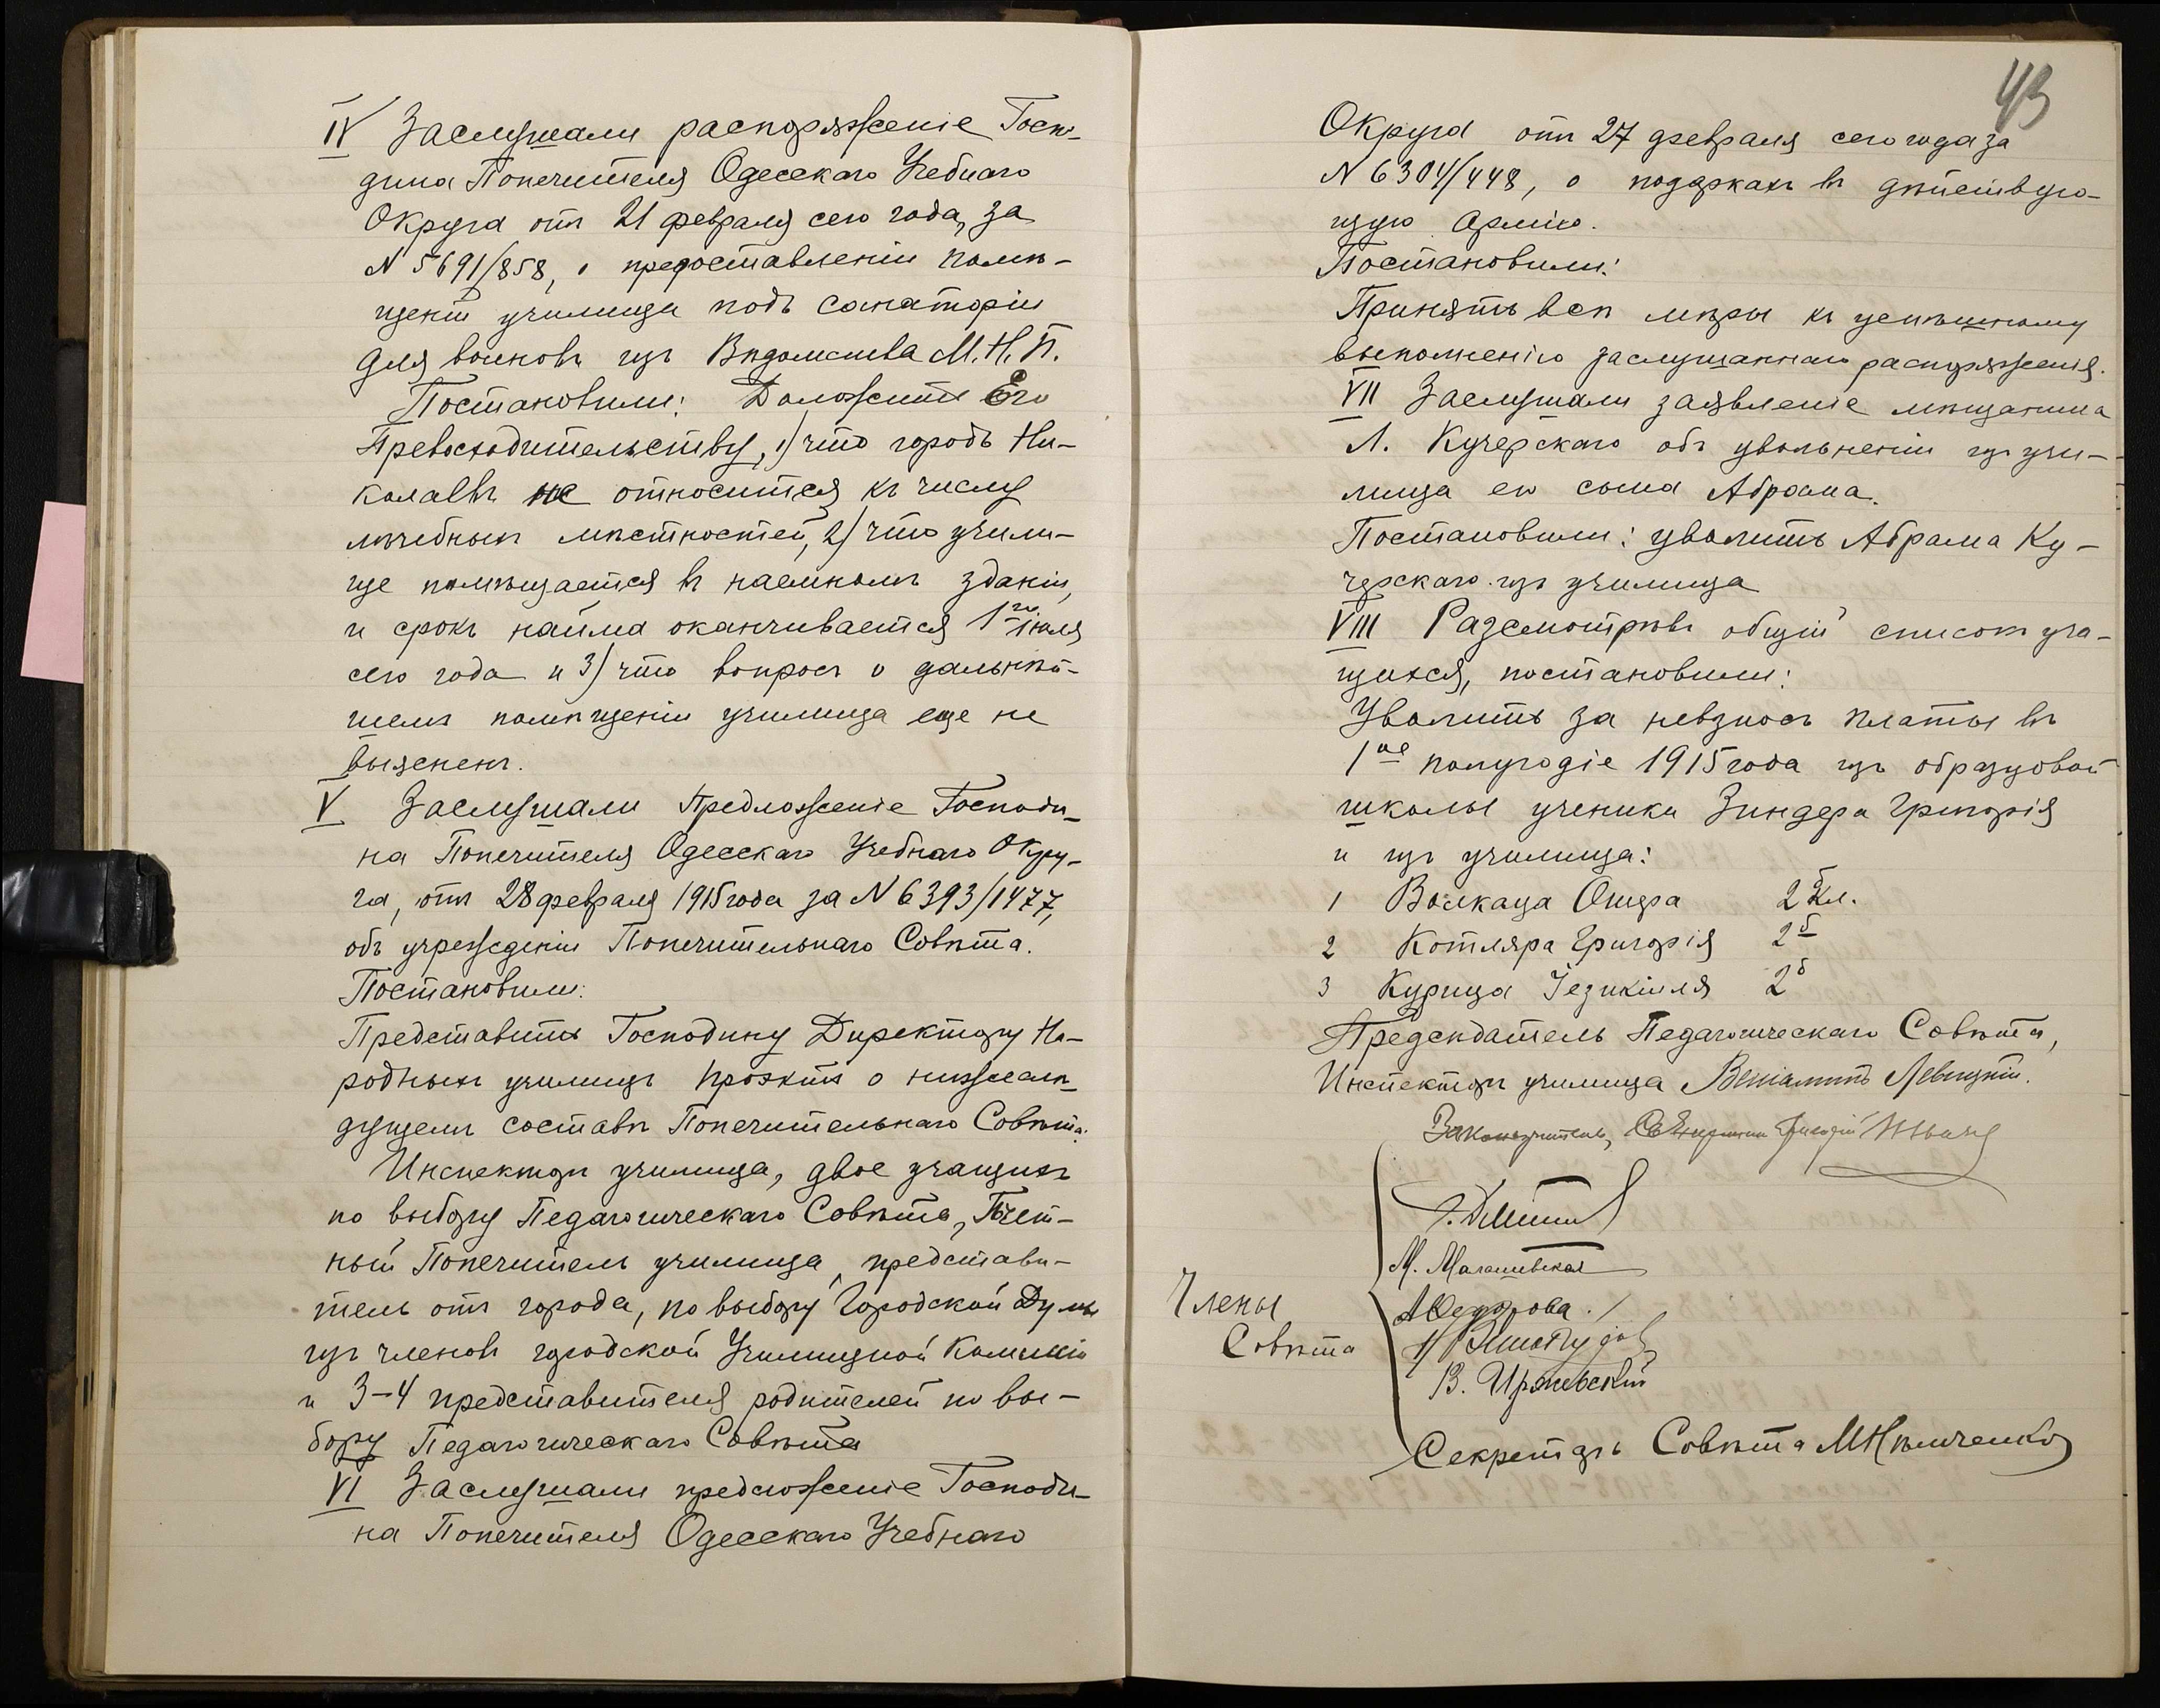 IV Заслушали распоряженіе Госпо-
дина Попечителя Одесскаго Учебнаго
Округа отъ 21 февраля сего года, за
N 5691/858, о предоставленіи помѣ-
щеній училища подъ санаторіи
для воиновъ изъ Вѣдомства М.Н.П.
Постановили: Доложить Его
Превосходительству, 1) что городъ Ни-
колаевъ не относится къ числу
лѣчебныхъ мѣстностей, 2) что учили-
ще помѣщается въ наемномъ зданіи,
и срокъ найма оканчивается 1го іюля
сего года и 3) что вопросъ о дальнѣй-
шемъ помѣщеніи училища еще не
выясненъ.
V Заслушали предложеніе Господи-
на Попечителя Одесскаго Учебнаго Окру-
га, отъ 28 февраля 1915 года за N 6393/1477,
объ учрежденіи Попечительнаго Совѣта.
Постановили:
Представить Господину Директору На-
родныхъ училищъ проэктъ о нижеслѣ-
дующемъ составѣ Попечительнаго Совѣта:
Инспекторъ училища, двое учащихъ
по выбору Педагогическаго Совѣта, Почет-
ный Попечитель училища, представи-
тель отъ города, по выбору Городской Думы
изъ членовъ городской Училищной Комиссіи
и 3-4 представителя родителей по вы-
бору Педагогическаго Совѣта
VI Заслушали предложеніе Господи-
на Попечителя Одесскаго Учебнаго
43
Округа отъ 27 февраля сего года за
N 6304/448, о подаркахъ въ дѣйствую-
щую Армію.
Постановили:
Принять всѣ мѣры къ успѣшному
выполненію заслушаннаго распоряженія.
VII Заслушали заявленіе мѣщанина
Л. Кучерскаго объ увольненіи изъ учи-
лища его сына Абрама.
Постановили: уволить Абрама Ку-
черскаго изъ училища
VIII Разсмотрѣвъ общій списокъ уча-
щихся, постановили:
Уволить за невзносъ платы въ
1ое полугодіе 1915 года изъ образцовой
школы ученика Зиндера Григорія
и изъ училища:
1 Волкаца Ошера 2б кл.
2 Котляра Григорія 2б
3 Курица Іезикіиля 2б
Предсѣдатель Педагогическаго Совѣта,
Инспекторъ училища Веніаминъ Левицкій.
Законоучитель, Священникъ Григорій
М. Малашевская
Члены
АФедорова.
Совѣта
В. Иржевскій
Секретарь Совѣта МНѣмченко